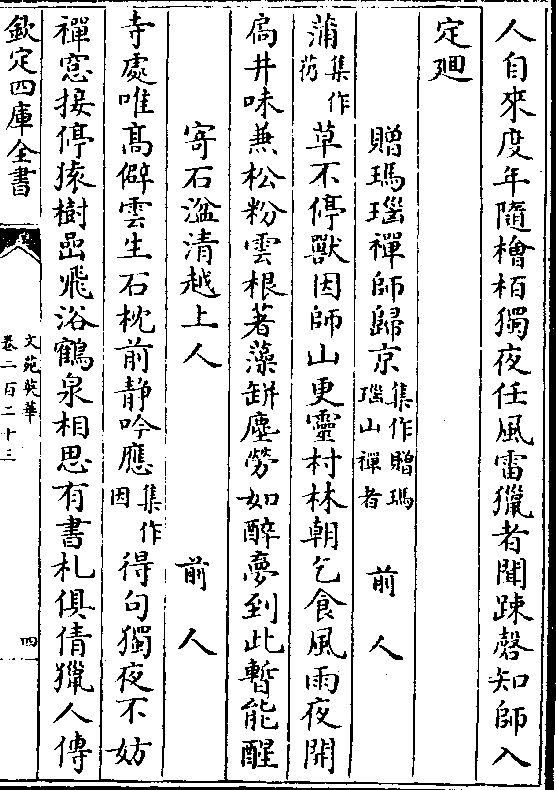 人自來度年隨檜栢獨夜任風雷獵者聞踈磬知師入
定廻
贈瑪瑙禪師歸京集作贈瑪瑙山禪者 前人
蒲集作芿草不停獸因師山更靈村林朝乞食風雨夜開
扄井味兼松粉雲根著藻缾塵勞如醉夢到此暫能醒
寄石湓清越上人 前人
寺處唯髙僻雲生石枕前静吟應集作因得句獨夜不妨
禪窓接停猿樹嵒飛浴鶴泉相思有書札俱倩獵人傳
欽定四庫全書
文苑英華
卷二百二十三
四